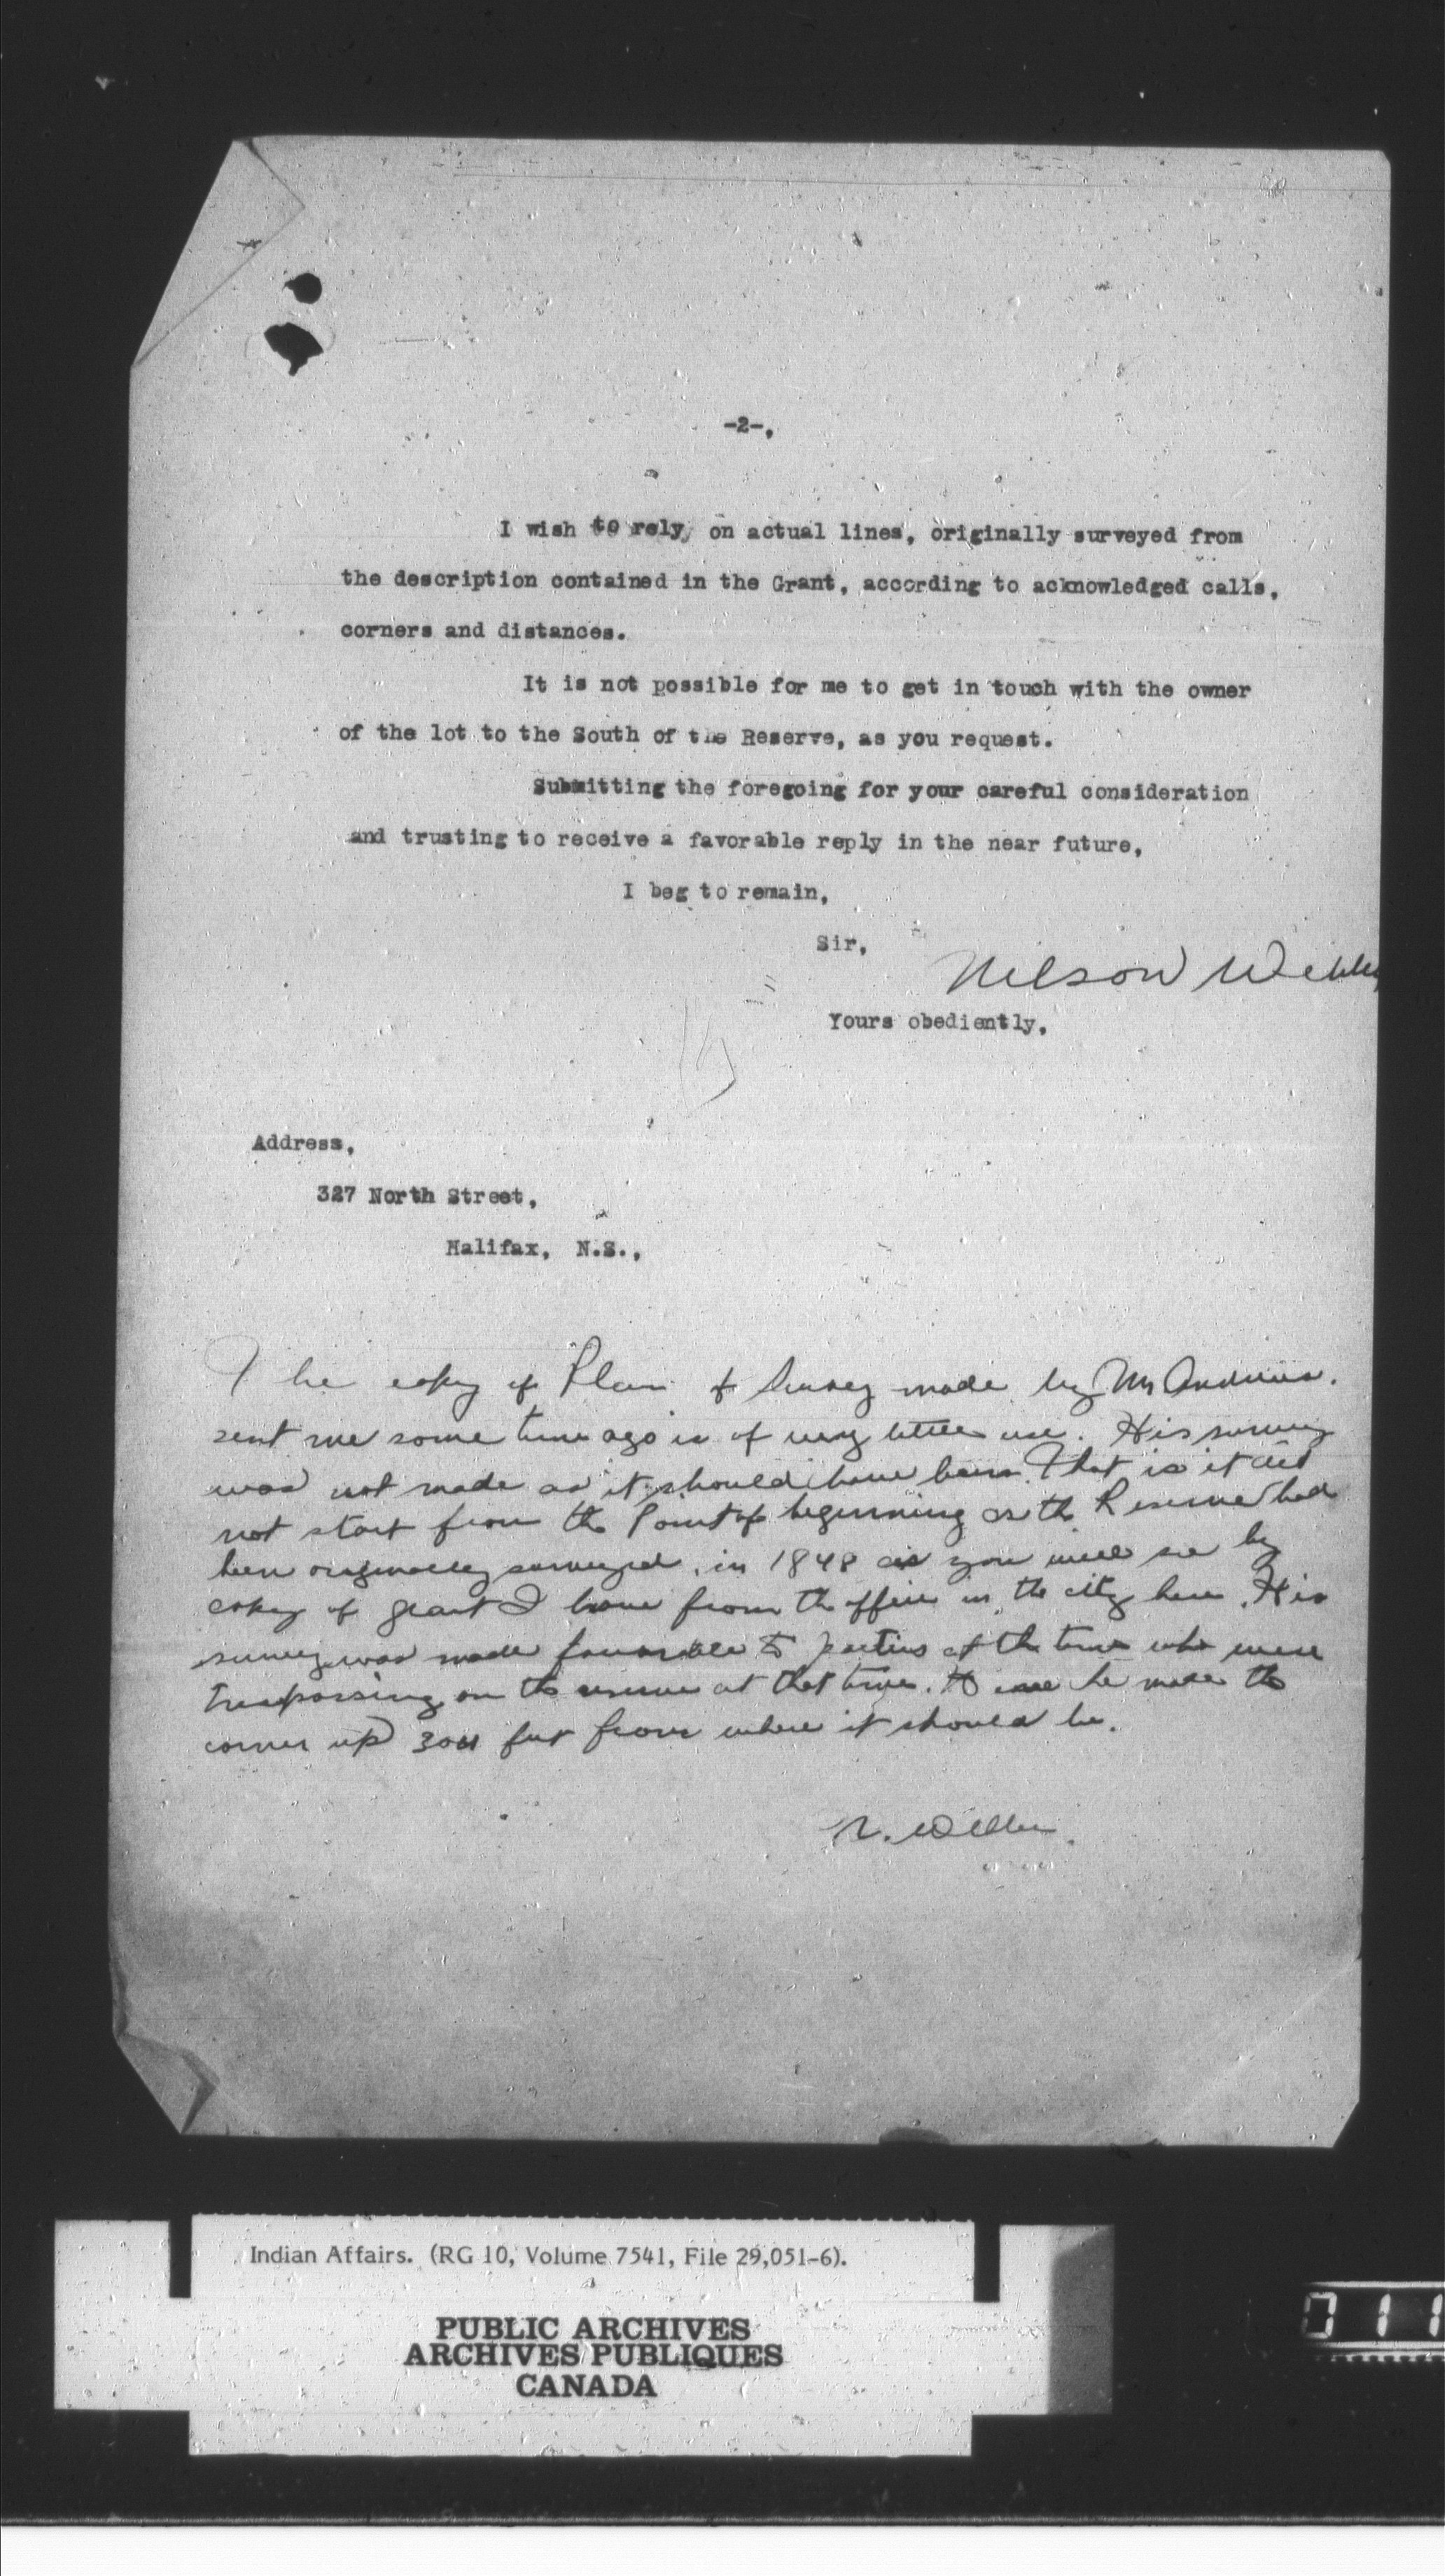 -2-.
I wish to rely on actual lines, originally surveyed from
the description contained in the Grant, according to acknowledged calls,
corners and distances.
It is not possible for me to get in touch with the owner
of the lot to the South of the Reserve, as you request.
Submitting the foregoing for your careful consideration
and trusting to receive a favorable reply in the near future,
I beg to remain,
Sir,
Nelson
Yours obediently,
Address,
327 North Street,
Halifax, N.S.,
The copy of Plan of Survey made by Mr
sent me some time ago is of very little use. His survey
was not made as it should have been. That is it did
not start from the Point of beginning as the Reserve had
been originally surveyed, in 1848 as you will see by
copy of grant I have from the office in the city here. His
survey was made favorable to parties at the time who were
trespassing on the reserve at that time. he made the
corner up feet from where it should be.
N.
Indian Affairs. (RG 10, Volume 7541, File 29,051-6).
PUBLIC ARCHIVES
ARCHIVES PUBLIQUES
CANADA
011